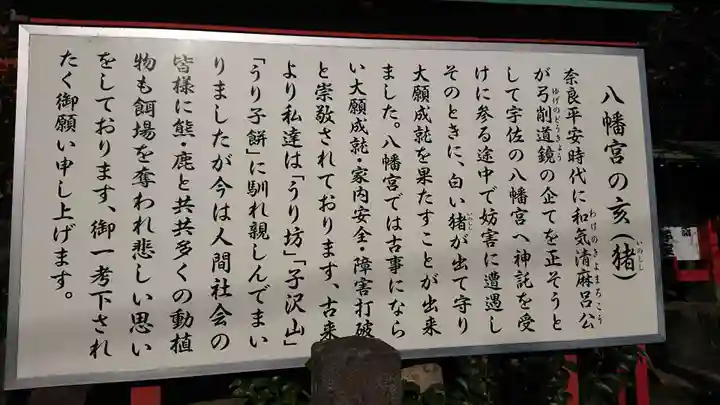 八幡宮の亥(猪)
いのしし
奈良平安時代に和気清麻呂公
わけのきよまろこう
が弓削道鏡の企てを正そうと
ゆげのどうきょう
して宇佐の八幡宮へ神託を受
けに参る途中で妨害に遭遇し
そのときに、白い猪が出て守り
大願成就を果たすことが出来
ました。八幡宮では古事になら
い大願成就・家内安全・障害打破
と崇敬されております、古来
より私達は「うり坊」「子沢山」
「うり子餅」に馴れ親しんでまい
りましたが今は人間社会の
皆様に熊・鹿と共共多くの動植
物も餌場を奪われ悲しい思い
をしております、御一考下され
たく御願い申し上げます。